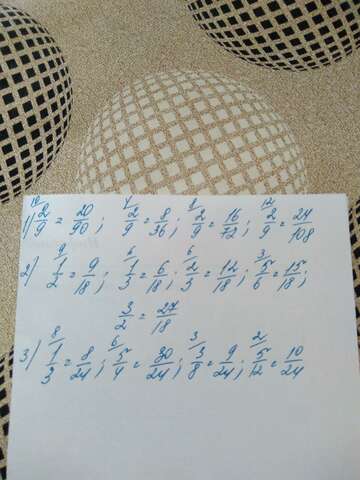 1) ¹⁰/2/9 = 20/90; ⁴/2/9 = 8/36; ⁸/2/9 = 16/72; ¹²/2/9 = 24/108
2) ⁹/1/2 = 9/18; ⁶/1/3 = 6/18; ⁶/2/3 = 12/18; ³/5/6 = 15/18;
3/2 = 27/18
3) ⁸/1/3 = 8/24; ⁶/5/4 = 30/24; ³/3/8 = 9/24; ²/5/12 = 10/24